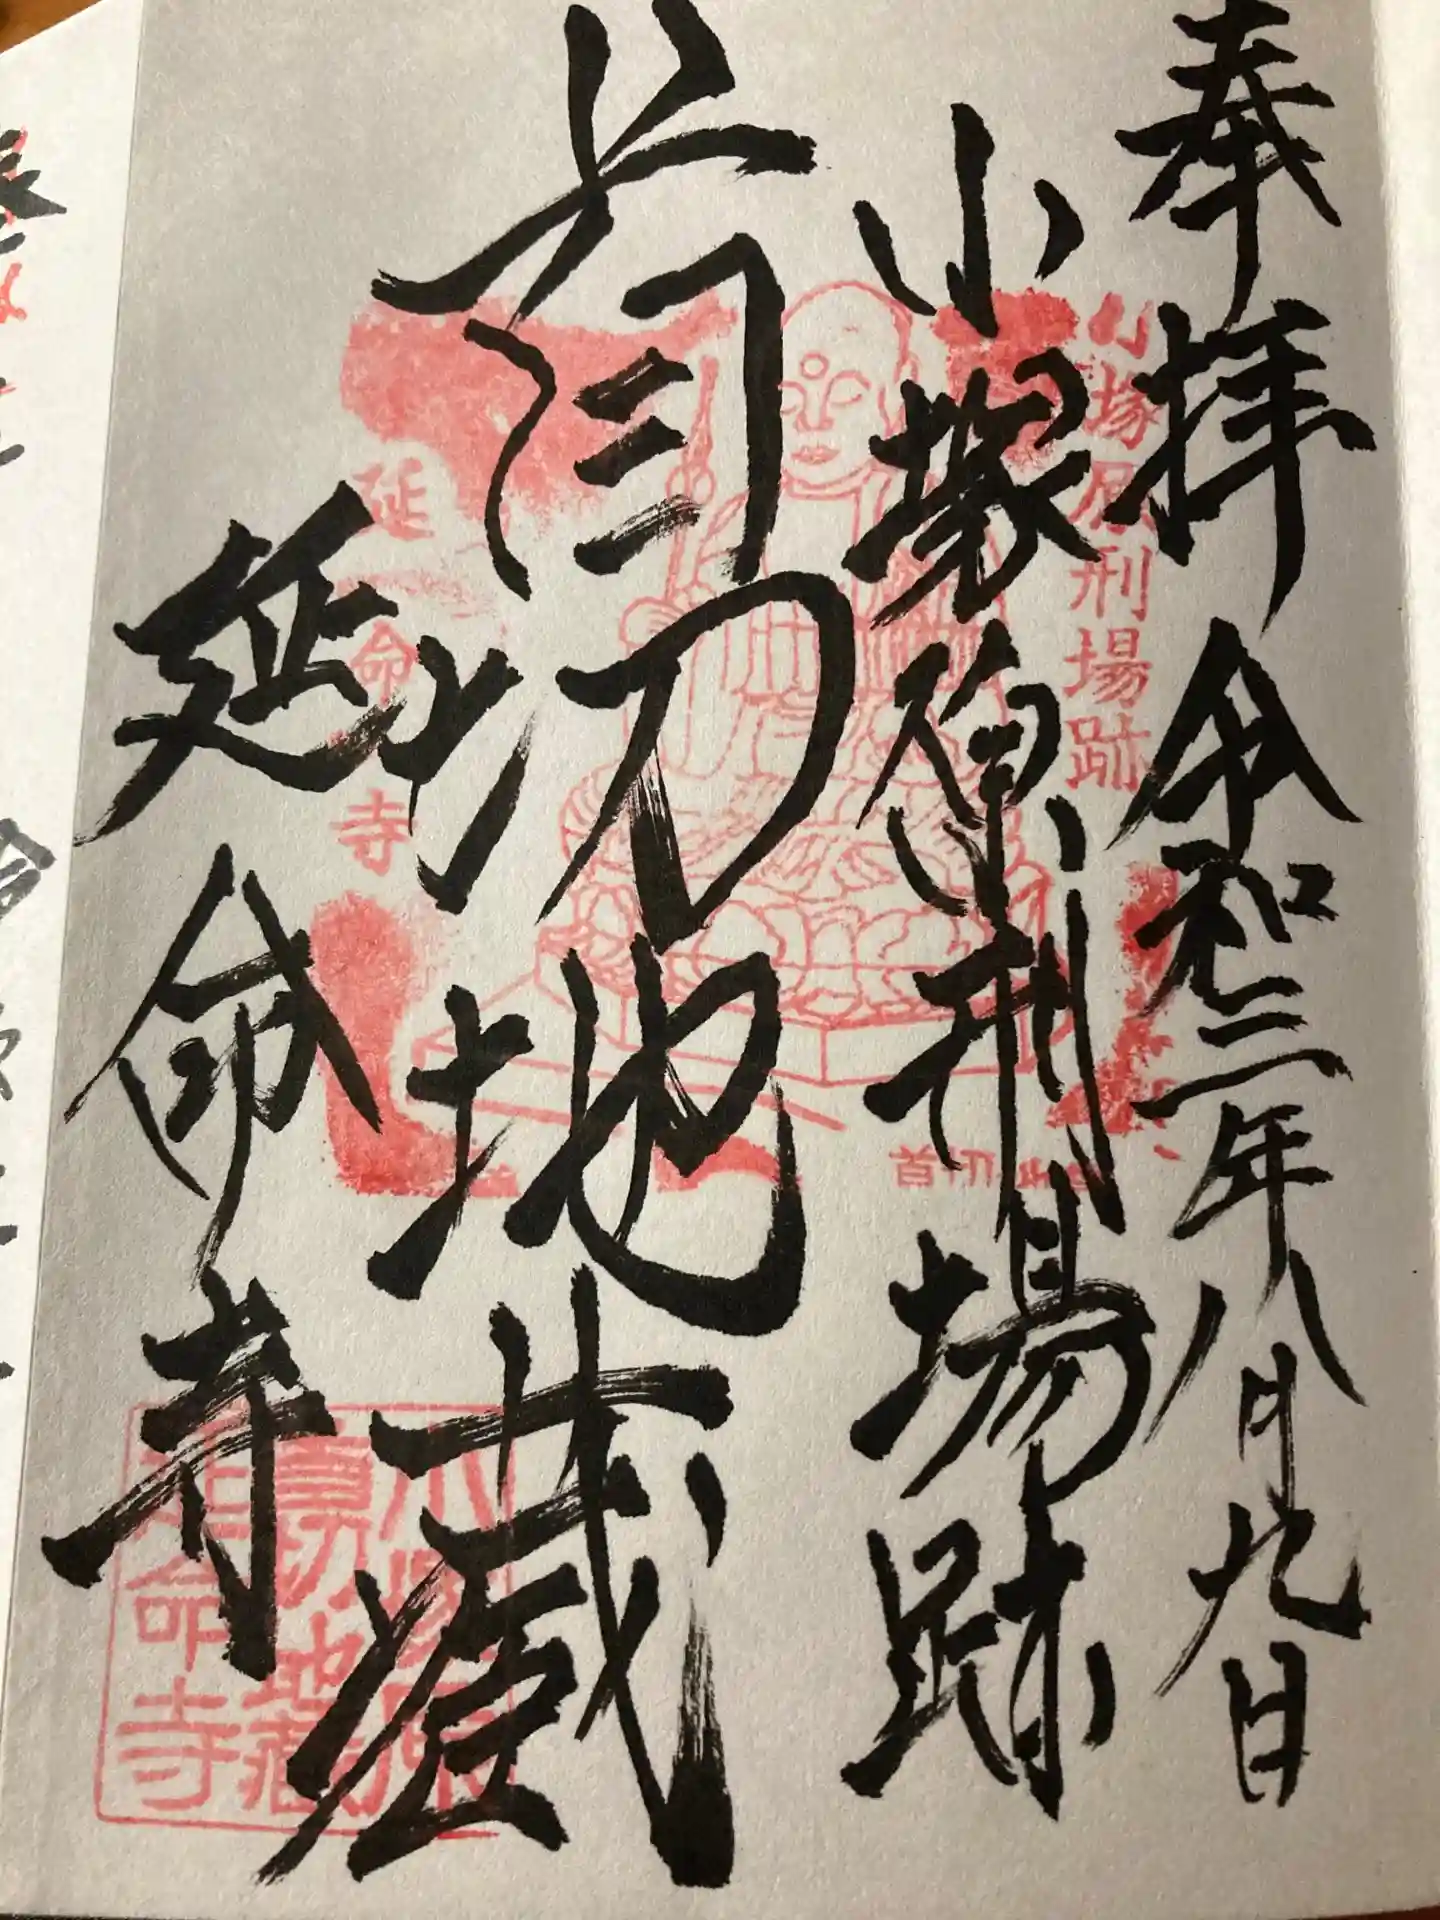 奉拝 令和三年八月九日
小塚原刑場跡
首切地蔵
延命寺
小塚原刑場跡
延命寺
首切地蔵
小塚原
首切地蔵
延命寺